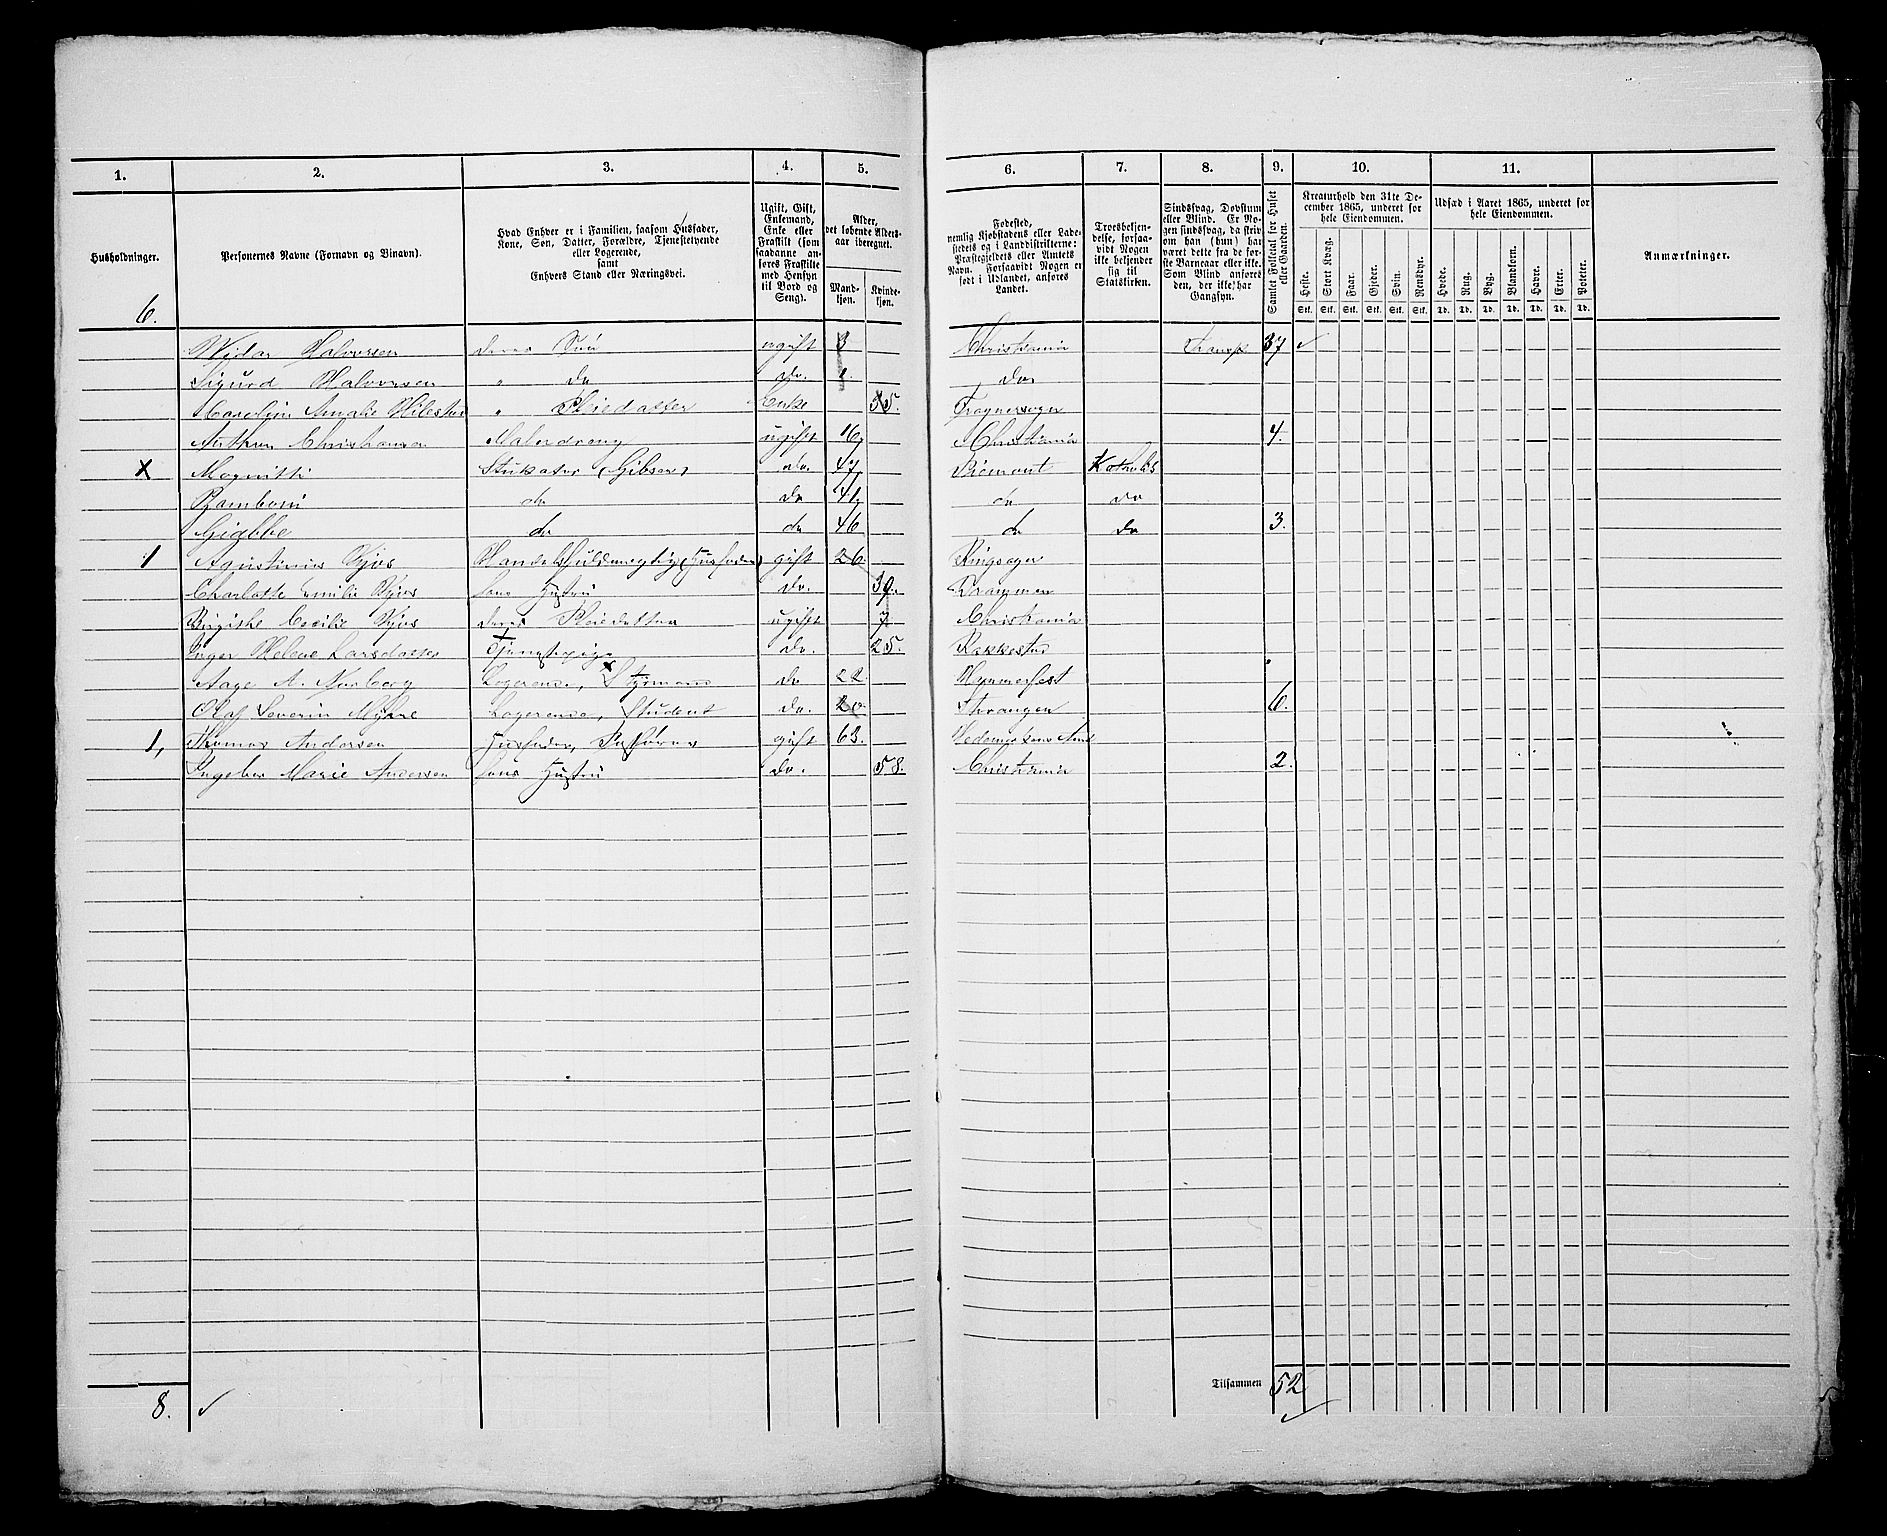 1. 2. 3. 4. 5. 6. 7. 8. 9. 10. 11.
Husholdninger.
Personernes Navne (Fornavn og Binavn).
Hvad Enhver er i Familien, saasom Husfader, Kone, Søn, Datter, Forældre, Tjenestetyende eller Logerende, samt Enhvers Stand eller Næringsvei.
Ugift, Gift, Enkemand, Enke eller Fraskilt (som saadanne anføres Fraskilte med Hensyn til Bord og Seng).
Alder, det løbende Alders-aar iberegnet.
Mand-kjøn. Kvinde-kjøn.
Fødested, nemlig Kjøbstadens eller Ladestedets og i Landdistrikterne: Præstegjeldets eller Amtets Navn. Forsaavidt Nogen er født i Udlandet, anføres Landet.
Troesbekjendelse, forsaavidt Nogen ikke bekjender sig til Statskirken.
Sindssvag, Døvstum eller Blind. Er Nogen sindssvag, da skrives om han (hun) har været dette fra de første Barneaar eller ikke. Som Blind anføres den, der ikke har Gangsyn.
Samlet Folketal for Huset eller Gaarden.
Kreaturhold den 31te December 1865, underet for hele Eiendommen.
Heste. Stort Kvæg. Faar. Gjeder. Svin. Rensdyr.
Stk. Stk. Stk. Stk. Stk. Stk.
Udsæd i Aaret 1865, underet for hele Eiendommen.
Hvede. Rug. Byg. Blandkorn. Havre. Erter. Poteter.
Td. Td. Td. Td. Td. Td. Td.
Anmærkninger.
6.
Vidar Halvorsen deres Søn ugift 3 Christiania Transp 37 ✓
Sigurd Halvorsen " do do. 1. do.
Karoline Amalie " Pleiedatter Enke 35. Fragnersogn
Anthon Christiansen Malerdreng ugift 16, Christiania 4.
x Magnitti Stukatør (Gibser) do. 47, Piemont Katholsk
Bamboni do do 41, do do
Giabbe do do 46 do do 3.
1 Agustinus Kjos Handelsfuldmegtig (Husfader) gift 26 Ringsager
Charlotte Emilie Kjos hans Hustru do. 39. Drammen
Birgithe Cecilie Kjos deres Pleiedatter ugift 7 Christiania
Inger Helene Larsdatter Tjenestepige do. 25. Rakkestad
Aage A. Norberg Logerende, Styrmand do 22. Hammerfest
Olaf Severin Myhre Logerende, Student do. 20 6.
1, Thomas Andersen Husfader, gift 63. Hedemarkens Amt
Ingebor Marie Andersen hans Hustru do. 58. Christiania 2.
8. ✓ Tilsammen 52 ✓